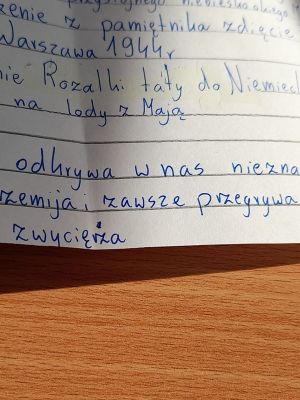 przystojnego niebieskookiego
zenie z pamiętnika zdięcie
Warszawa 1944r
nie Rozalki taty do Niemiec
na lody z Mają
odkrywa w nas niezna
zemija i zawsze przegrywa
zwycięża